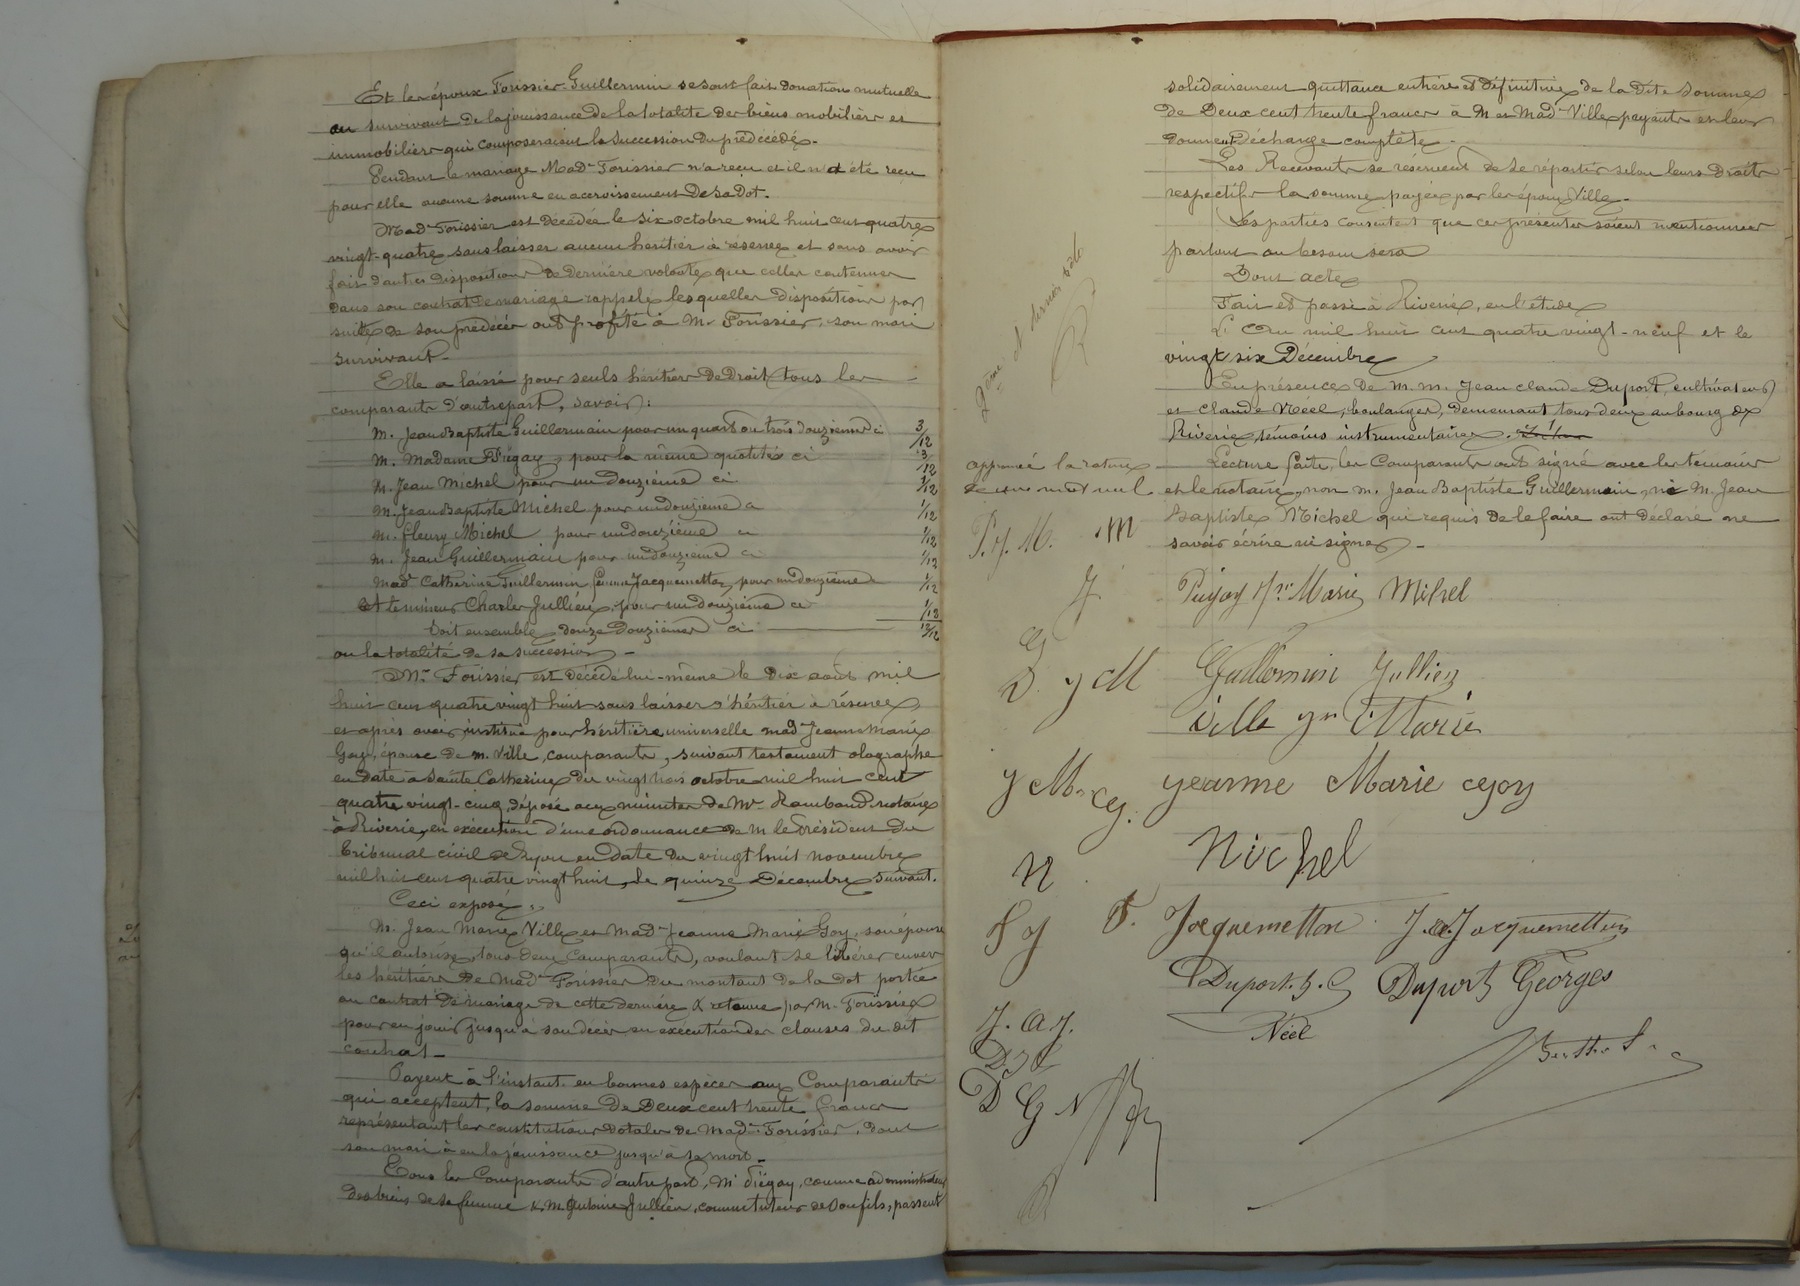 Et les époux Forissier-Guillermin se sont fait donation mutuelle
au survivant de la jouissance de la totalité des biens mobiliers et
immobiliers qui composeraient la succession du prédécédé.
Pendant le mariage Mad. Forissier n'a reçu et il n'a été reçu
pour elle aucune somme en accroissement de sa dot.
Mad. Forissier est décédée le six octobre mil huit cent quatre
vingt-quatre sans laisser aucun héritier à réserve et sans avoir
fait d'autres dispositions de dernière volonté que celles contenues
dans son contrat de mariage rappelé lesquelles dispositions par
suite de son prédécès ont profité à M. Forissier, son mari
survivant.
Elle a laissé pour seuls héritiers de droit tous les
comparants d'autre part, savoir:
M. Jean Baptiste Guillermain pour un quart ou trois douzièmes ci 3/12
M. Madame Piégay, pour la même quotité ci 3/12
M. Jean Michel pour un douzième ci 1/12
M. Jean Baptiste Michel pour un douzième ci 1/12
M. Fleury Michel pour un douzième ci 1/12
M. Jean Guillermain pour un douzième ci 1/12
Mad. Catherine Guillermin femme Jacquemetton, pour un douzième 1/12
Et le mineur Charles Jullien, pour un douzième ci 1/12
Soit ensemble douze douzièmes ci 12/12
ou la totalité de sa succession.
M. Forissier est décédé lui-même le dix août mil
huit cent quatre vingt huit sans laisser d'héritier à réserve,
et après avoir institué pour héritière universelle mad. Jeanne Marie
Goy, épouse de M. Ville, comparante, suivant testament olographe
en date à Sainte Catherine du vingt trois octobre mil huit cent
quatre vingt-cinq, déposé aux minutes de Me Rambaud notaire
à Riverie, en exécution d'une ordonnance de M. le Président du
tribunal civil de Lyon en date du vingt huit novembre
mil huit cent quatre vingt huit, le quinze Décembre suivant.
Ceci exposé,
M. Jean Marie Ville et Mad. Jeanne Marie Goy, son épouse
qu'il autorise, tous deux comparants, voulant se libérer envers
les héritiers de Mad. Forissier du montant de la dot portée
au contrat de mariage de cette dernière & retenue par M. Forissier
pour en jouir jusqu'à son décès en exécution des clauses du dit
contrat.
Payent à l'instant en bonnes espèces aux Comparants
qui acceptent, la somme de Deux cent trente francs
représentant les constitutions dotales de Mad. Forissier, dont
son mari a eu la jouissance jusqu'à sa mort.
Tous les Comparants d'autre part, M. Piégay, comme administrateur
des biens de sa femme & M. Antoine Jullien, comme tuteur de son fils, passent
solidairement quittance entière et définitive de la dite somme
de Deux cent trente francs à M. et Mad. Ville payants et leur
donnent décharge complète.
Les Recevants se réservent de se répartir selon leurs droits
respectifs la somme payée par les époux Ville.
Les parties consentent que ces présentes soient mentionnées
partout où besoin sera
Dont acte
Fait et passé à Riverie, en l'étude
L'an mil huit cent quatre vingt-neuf et le
vingt six Décembre
En présence de M. M. Jean Claude Duport, cultivateur
et Claude Néel, boulanger, demeurant tous deux au bourg de
Riverie, témoins instrumentaires.
Lecture faite, les Comparants ont signé avec les témoins
et le notaire, non M. Jean Baptiste Guillermain, ni M. Jean
Baptiste Michel qui requis de le faire ont déclaré ne
savoir écrire ni signer.
2ème et dernier rôle
approuvé la rature
de un mot nul
P. J. M. M
J.
G
D. J M
J M. G.
N
F J F.
J. A J.
D J C
D G N
Marie Michel
Guillermin Jullien
Ville Jn Marie
Jeanne Marie Goy
Michel
Jacquemetton J. Jacquemetton
Duport. J. C Duport Georges
Néel